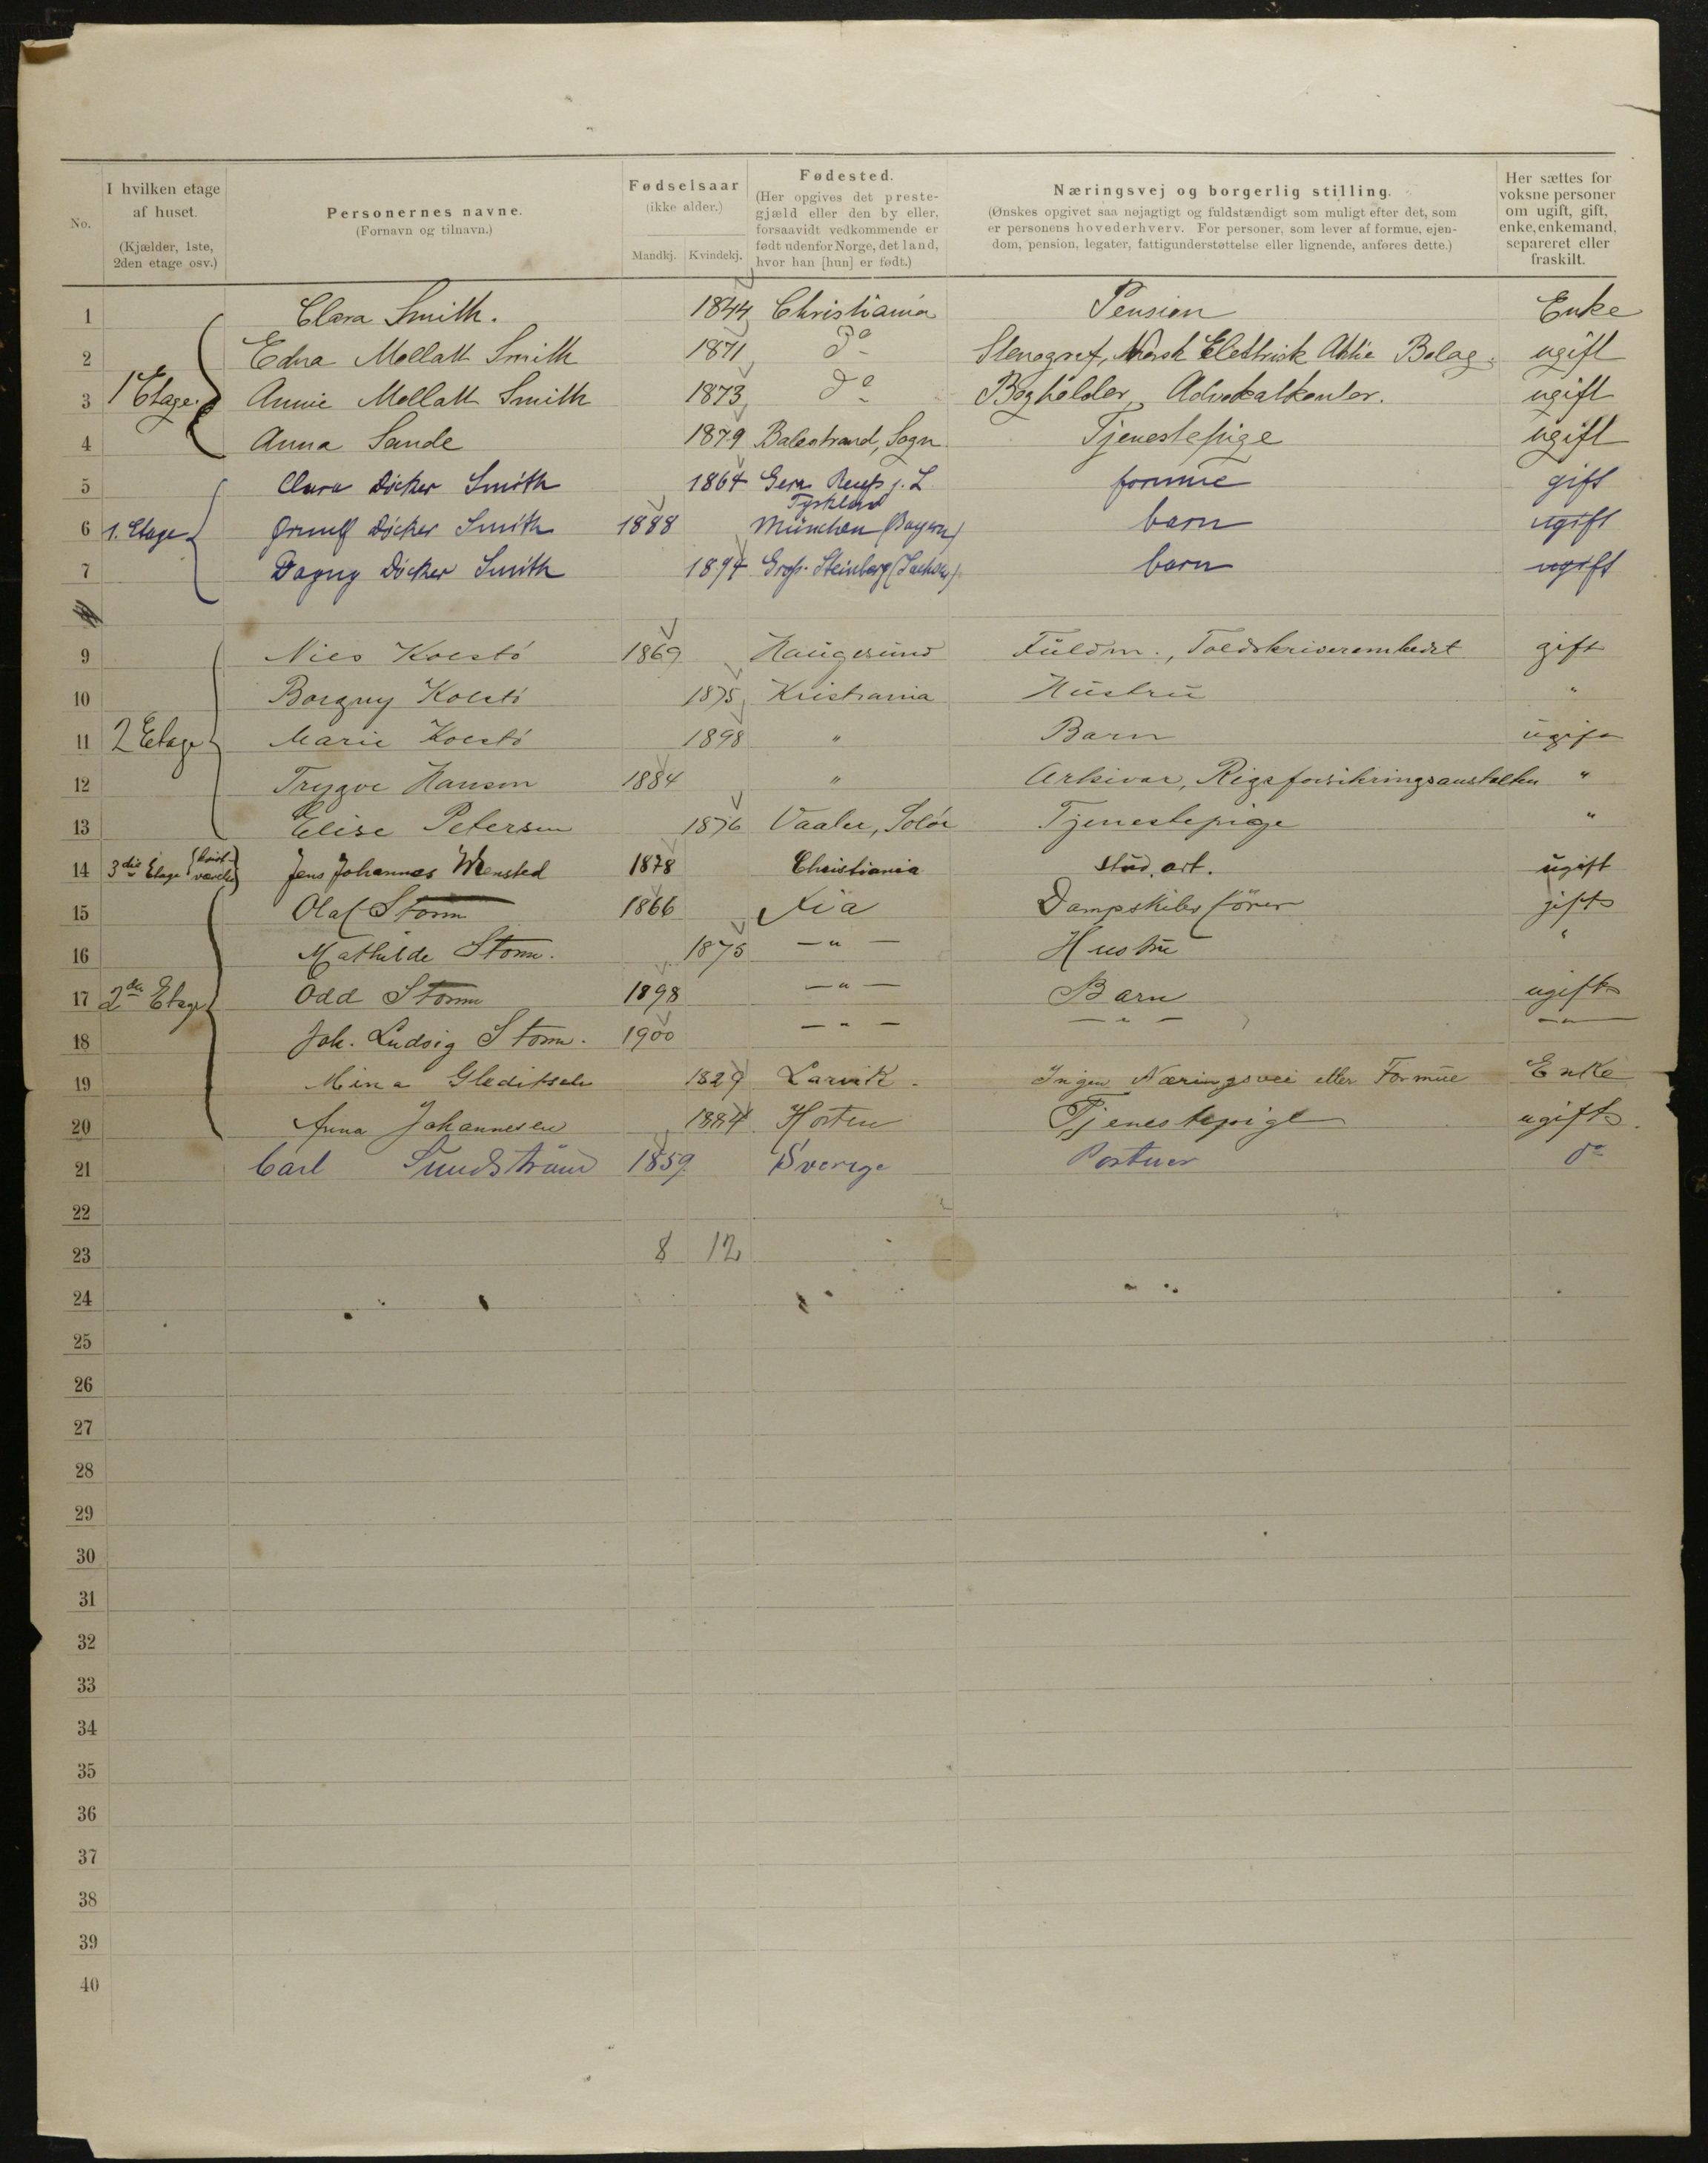 No. I hvilken etage af huset. (Kjælder, 1ste, 2den etage osv.) Personernes navne. (Fornavn og tilnavn.) Fødselsaar (ikke alder.) Mandkj. Kvindekj. Fødested. (Her opgives det prestegjæld eller den by eller, forsaavidt vedkommende er født udenfor Norge, det land, hvor han [hun] er født.) Næringsvej og borgerlig stilling. (Ønskes opgivet saa nøjagtigt og fuldstændigt som muligt efter det, som er personens hovederhverv. For personer, som lever af formue, ejendom, pension, legater, fattigunderstøttelse eller lignende, anføres dette.) Her sættes for voksne personer om ugift, gift, enke, enkemand, separeret eller fraskilt.
1 Clara Smith. 1844 Christiania Pension Enke
2 Edna Mollatt Smith 1871 do Stenograf, Norsk Elektrisk Aktie Bolag. ugift
3 1 Etage. Annie Mollatt Smith 1873 do Bogholder, Advokatkontor. ugift
4 Anna Sande 1879 Balestrand, Sogn Tjenestepige ugift
5 Clara Döcker Smith 1864 Gera Reuß j. L. Tyskland formue gift
6 1. Etage Ornulf Döcker Smith 1888 München (Bayern) barn ugift
7 Dagny Döcker Smith 1894 Groß-Steinberg (Sachsen) barn ugift
8
9 Nils Kolstö 1869 Haugesund Fuldm., Toldskriverembedet gift
10 Borgny Kolstö 1875 Kristiania Hustru "
11 2 Etage Marie Kolstö 1898 " Barn ugift
12 Trygve Hanson 1884 " Arkivar, Rigsforsikringsanstalten "
13 Elise Petersen 1876 Vaaler, Solör Tjenestepige "
14 3die Etage (kvistværelse) Jens Johannes Mensted 1878 Christiania stud. art. ugift
15 Olaf Storm 1866 Xia Dampskibsförer gift
16 Mathilde Storm. 1875 — " — Hustru "
17 2den Etage Odd Storm 1898 — " — Barn ugift
18 Joh. Ludvig Storm. 1900 — " — — " — — " —
19 Mina Gleditsch 1829 Larvik. Ingen Næringsvei eller Formue Enke
20 Anna Johannesen 1884 Horten Tjenestepige ugift.
21 Carl Sundström 1859 Sverige Portner do
22
23 8 12
24
25
26
27
28
29
30
31
32
33
34
35
36
37
38
39
40